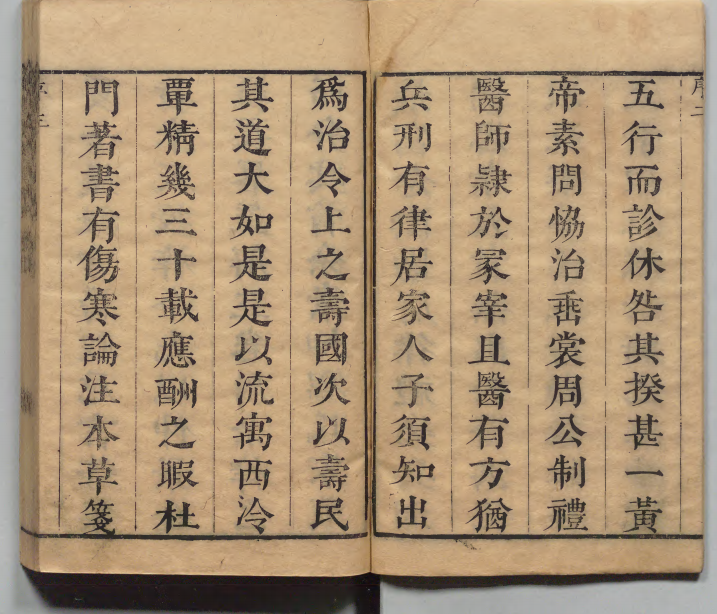 序二
五行而診休咎其揆甚一黃
帝素問恊治垂裳周公制禮
醫師隷於冡宰且醫有方猶
兵刑有律居家人子須知出
爲治令上之壽國次以壽民
其道大如是是以流寓西泠
覃精幾三十載應酬之暇杜
門著書有傷寒論注本草箋
序三